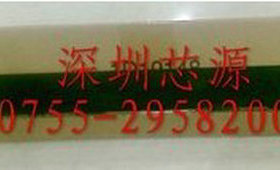 深圳芯源
0755-2958200